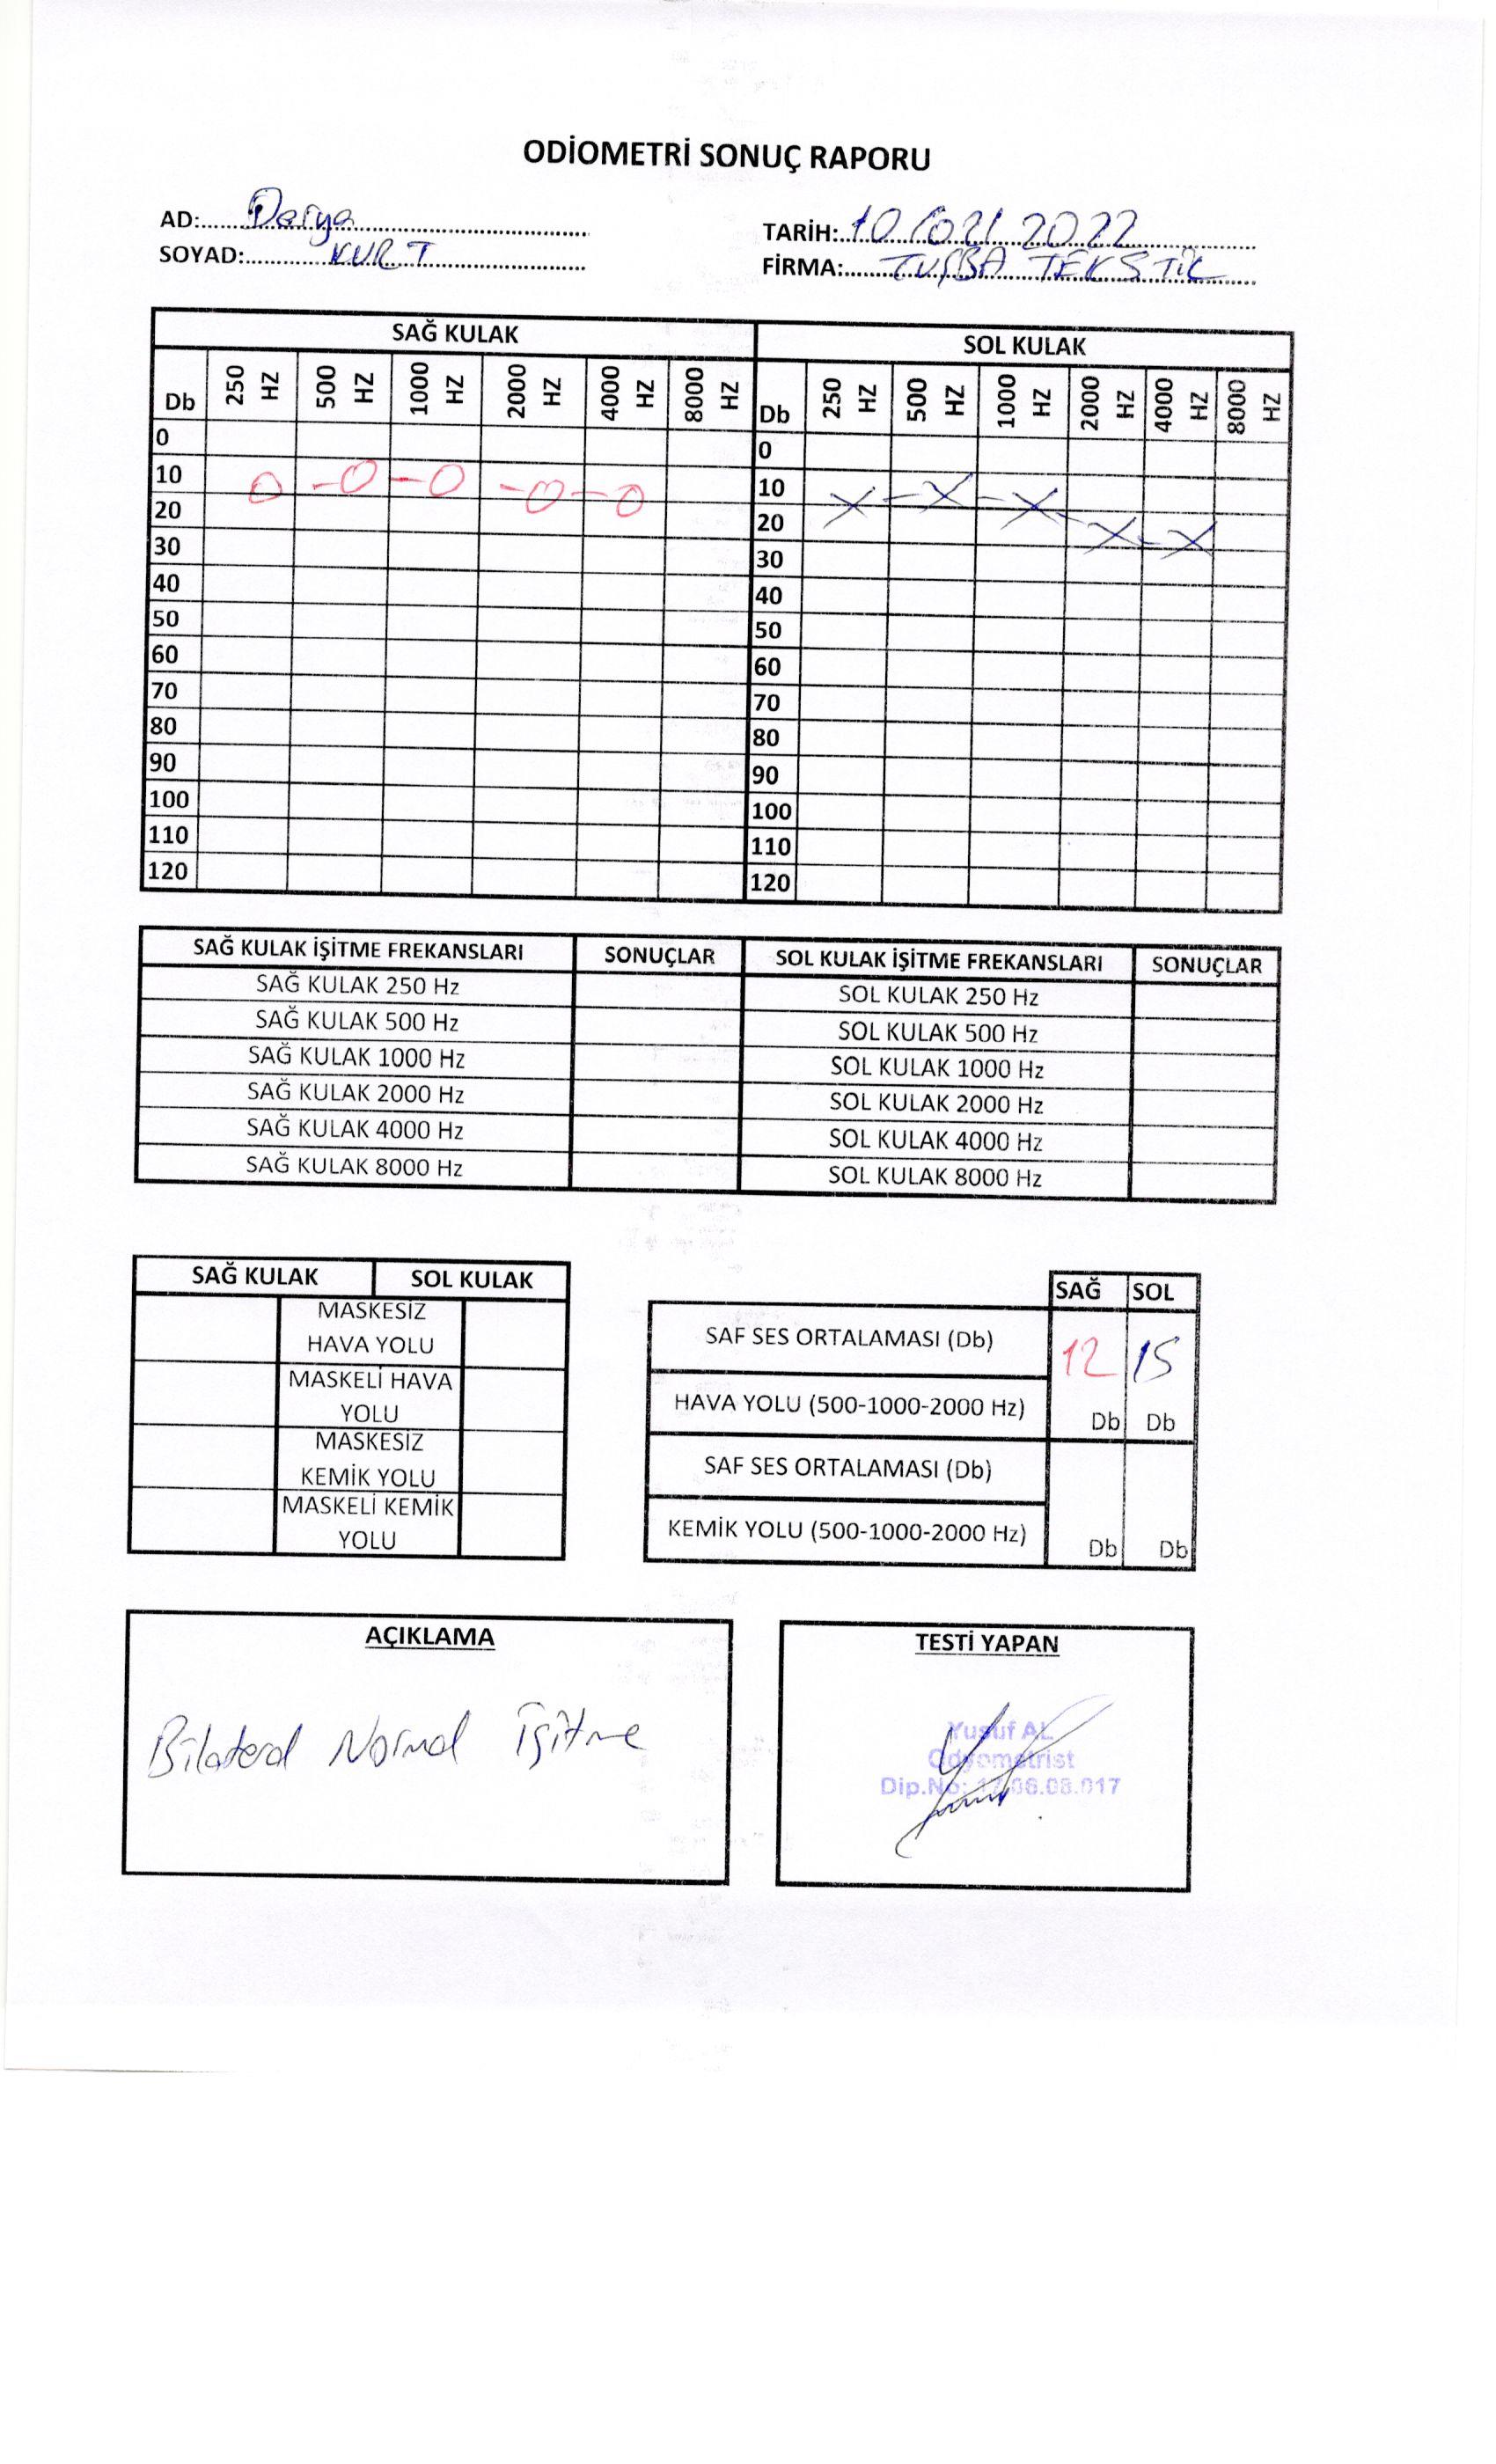 ODİOMETRİ SONUÇ RAPORU
AD: Derya
SOYAD: KURT
TARİH: 10/02/2022
FİRMA: TUĞBA TEKSTİL
SAĞ KULAK SOL KULAK
Db 250 HZ 500 HZ 1000 HZ 2000 HZ 4000 HZ 8000 HZ Db 250 HZ 500 HZ 1000 HZ 2000 HZ 4000 HZ 8000 HZ
0 0
10 10
20 20
30 30
40 40
50 50
60 60
70 70
80 80
90 90
100 100
110 110
120 120
SAĞ KULAK İŞİTME FREKANSLARI SONUÇLAR SOL KULAK İŞİTME FREKANSLARI SONUÇLAR
SAĞ KULAK 250 Hz SOL KULAK 250 Hz
SAĞ KULAK 500 Hz SOL KULAK 500 Hz
SAĞ KULAK 1000 Hz SOL KULAK 1000 Hz
SAĞ KULAK 2000 Hz SOL KULAK 2000 Hz
SAĞ KULAK 4000 Hz SOL KULAK 4000 Hz
SAĞ KULAK 8000 Hz SOL KULAK 8000 Hz
SAĞ KULAK SOL KULAK
MASKESİZ
HAVA YOLU
MASKELİ HAVA
YOLU
MASKESİZ
KEMİK YOLU
MASKELİ KEMİK
YOLU
SAĞ SOL
SAF SES ORTALAMASI (Db) 12 15
HAVA YOLU (500-1000-2000 Hz) Db Db
SAF SES ORTALAMASI (Db)
KEMİK YOLU (500-1000-2000 Hz) Db Db
AÇIKLAMA
Bilateral Normal İşitme
TESTİ YAPAN
Yusuf AL
Odyometrist
Dip.No: 17.06.08.017